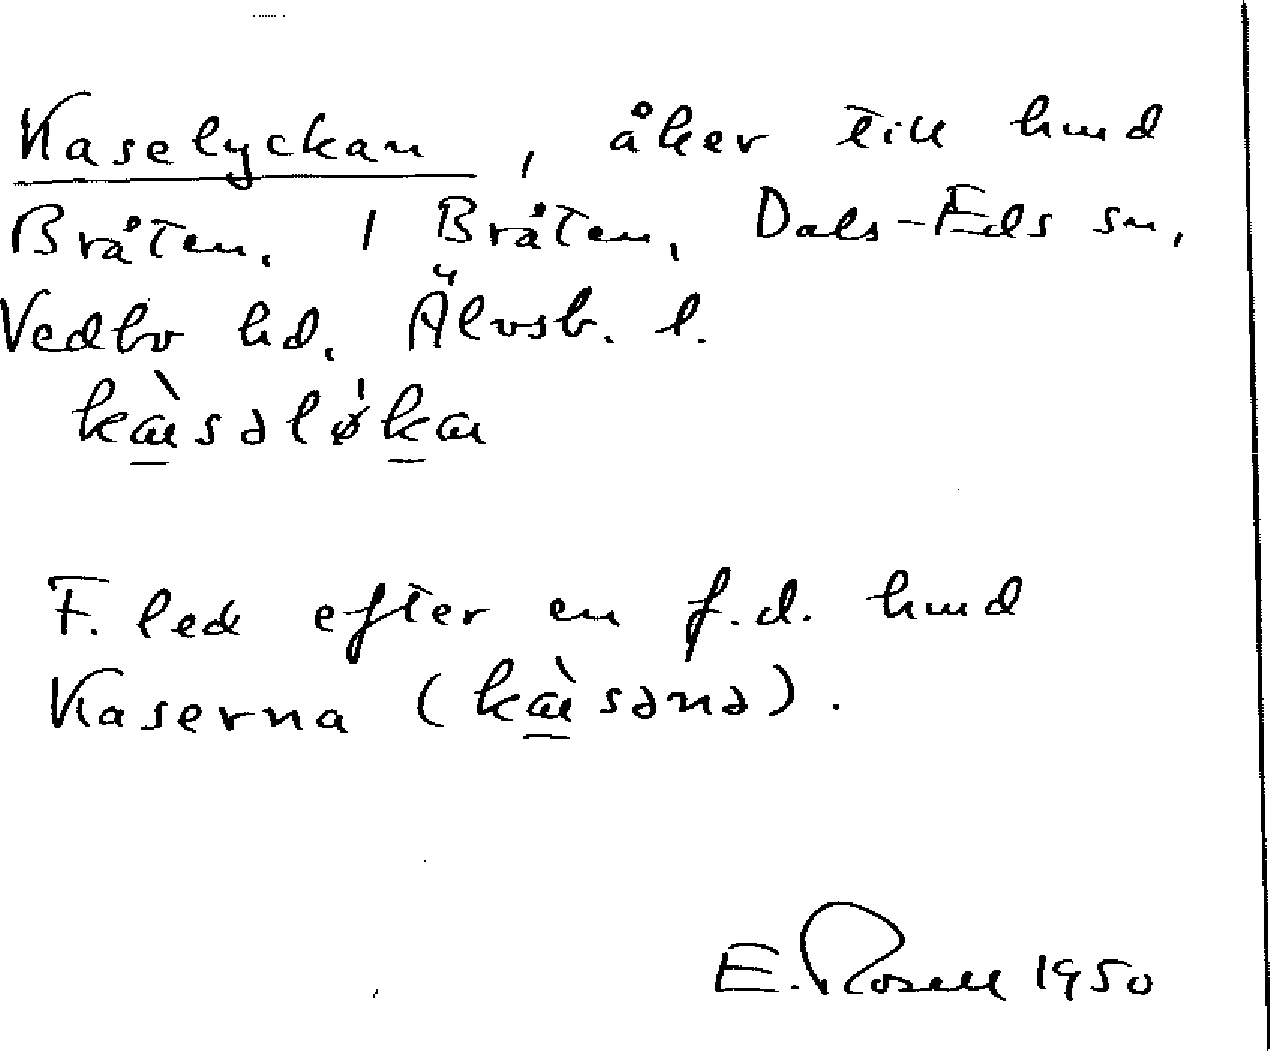 Kaselyckan, åker till hmd
Bråten, 1 Bråten, Dals-Eds sn,
Vedbo hd, Älvsb. l.
kàsəløka
F. led efter en f.d. hmd
Kaserna (kàsənə).
E. Rosell 1950